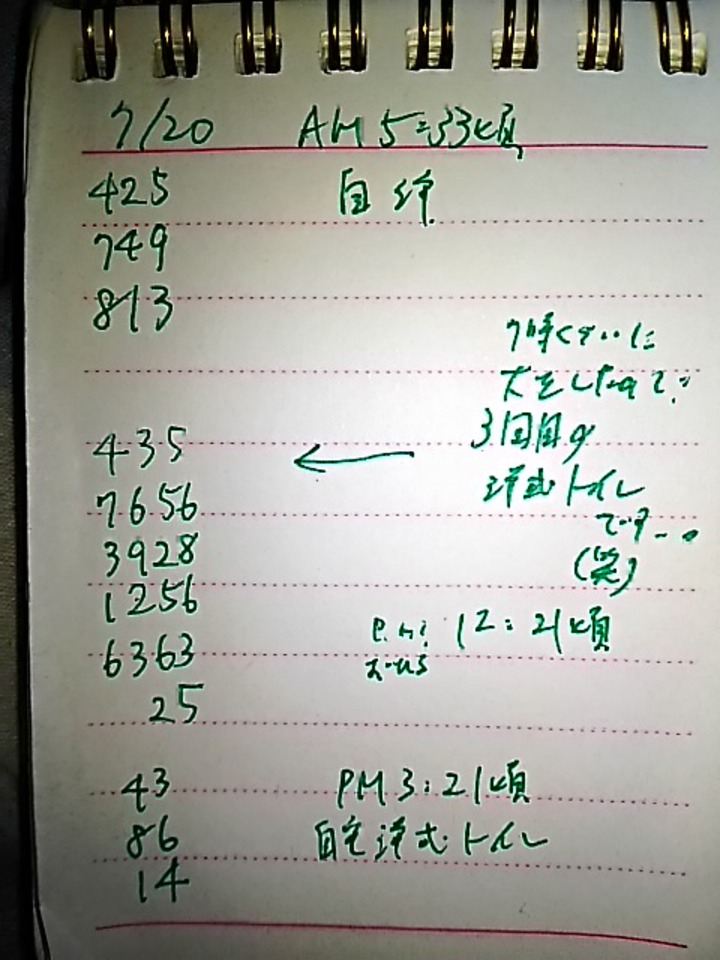 7/20 AM 5:33頃
425 自
749
813
7時くらいに
大をしたので、
3回目の
洋式トイレ
です…。
(笑)
←
435
7656
3928
1256
6363
25
P.M. 12:21頃
おひる
43 PM 3:21頃
86 自宅洋式トイレ
14